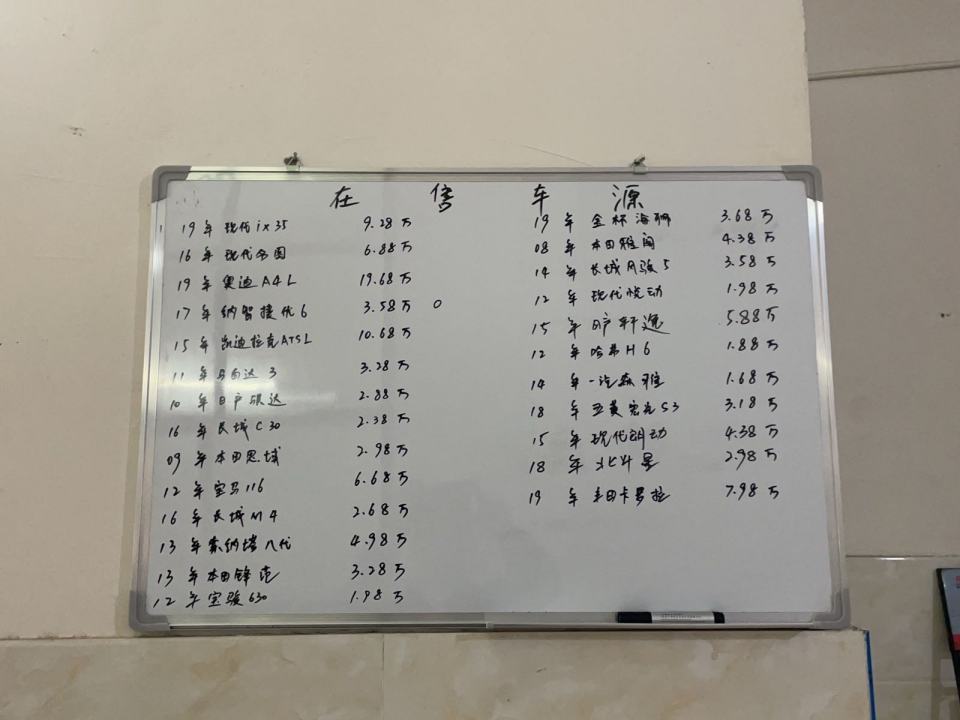 在售车源
19年 现代ix35 9.28万
16年 现代名图 6.88万
19年 奥迪A4L 19.68万
17年 纳智捷优6 3.58万 0
15年 凯迪拉克ATSL 10.68万
11年 马自达3 3.28万
10年 日产骐达 2.88万
16年 长城C30 2.38万
09年 本田思域 2.98万
12年 宝马116 6.68万
16年 长城M4 2.68万
13年 索纳塔八代 4.98万
13年 本田锋范 3.28万
12年 宝骏630 1.98万
19年 金杯海狮 3.68万
08年 本田雅阁 4.38万
14年 长城风骏5 3.58万
12年 现代悦动 1.98万
15年 日产轩逸 5.88万
12年 哈弗H6 1.88万
14年 一汽森雅 1.68万
18年 五菱宏光S3 3.18万
15年 现代朗动 4.38万
18年 北斗星 2.98万
19年 丰田卡罗拉 7.98万